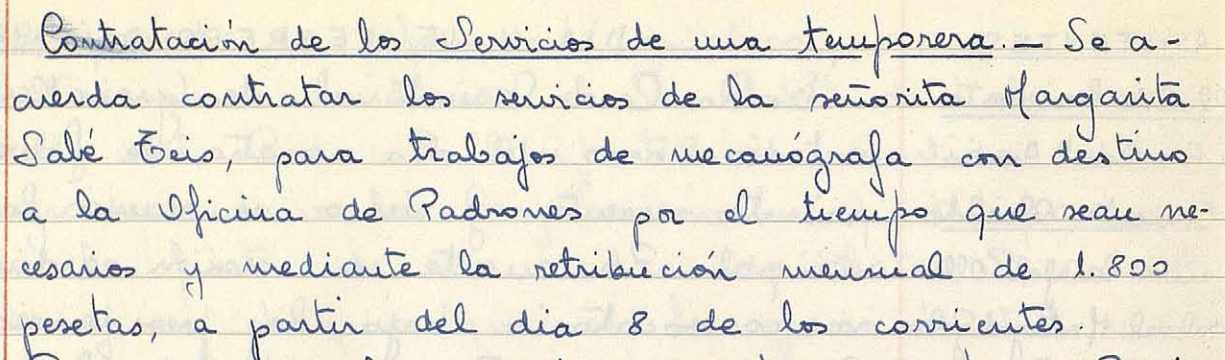 Contratación de los Servicios de una temporera. — Se a-
cuerda contratar los servicios de la señorita Margarita
Sabé Teis, para trabajos de mecanógrafa con destino
a la Oficina de Padrones por el tiempo que sean ne-
cesarios y mediante la retribución mensual de 1.800
pesetas, a partir del dia 8 de los corrientes.